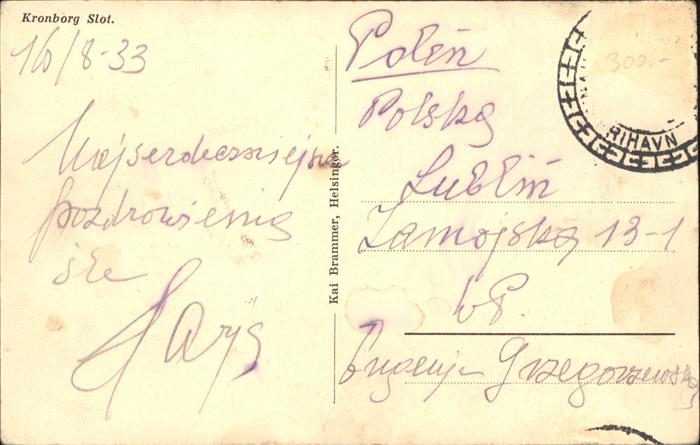 Kronborg Slot.
16/8-33
Najserdeczniejsze
pozdrowienia
śle
Kai Brammer, Helsingør.
Polen
Polska
Lublin
Zamojska 13-1
WP.
Eugenja Grzegorzewska
300.-
RIHAVN